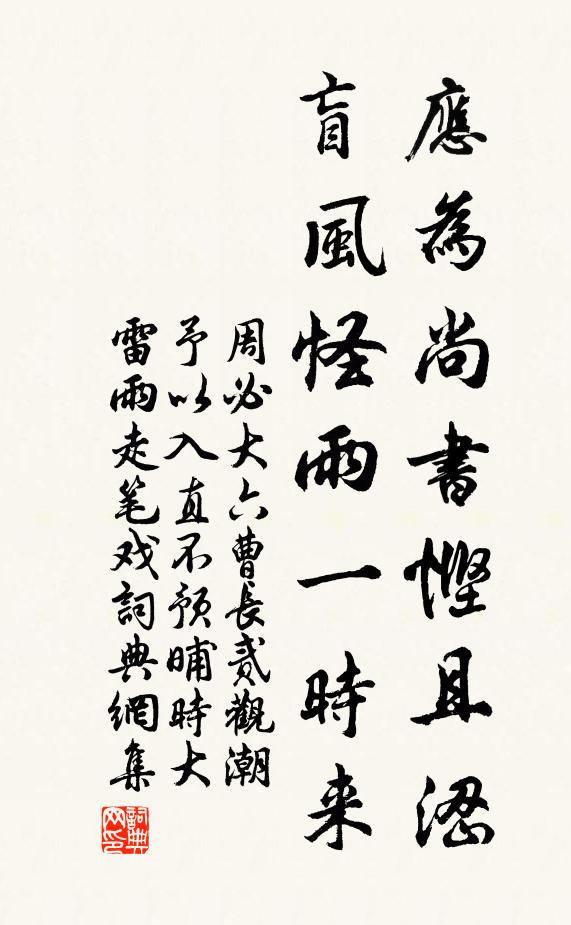 應為尚書慳且涩
盲風怪雨一時来
周必大六曹長貳觀潮
予以入直不預晡時大
雷雨走笔戏詞典網集
詞典
网印